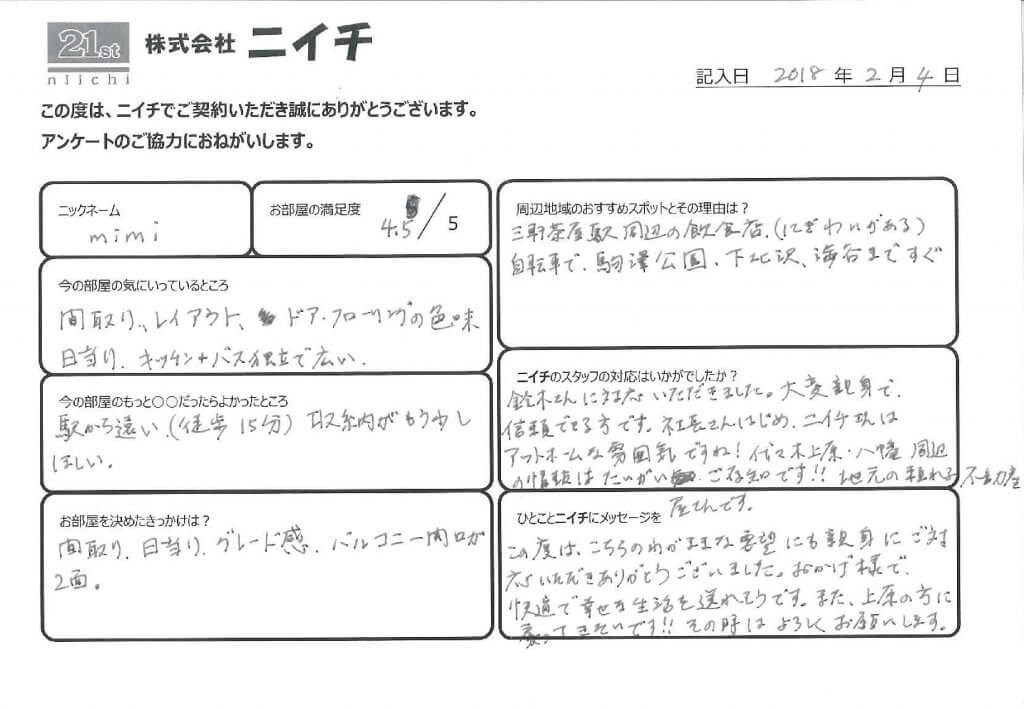 21st
niichi
株式会社 ニイチ
記入日 2018 年 2 月 4 日
この度は、ニイチでご契約いただき誠にありがとうございます。
アンケートのご協力におねがいします。
ニックネーム
mimi
お部屋の満足度
4.5/5
今の部屋の気にいっているところ
間取り、レイアウト、ドア・フローリングの色味
日当り、キッチン+バス独立で広い.
今の部屋のもっと○○だったらよかったところ
駅から遠い.(徒歩15分) 収納がもう少し
ほしい.
お部屋を決めたきっかけは?
間取り、日当り、グレード感、バルコニー開口が
2面。
周辺地域のおすすめスポットとその理由は?
三軒茶屋駅周辺の飲食店.(にぎわいがある)
自転車で、駒澤公園、下北沢、渋谷まですぐ
ニイチのスタッフの対応はいかがでしたか?
鈴木さんに対応いただきました。大変親身で、
信頼できる方です。社長さんはじめ、ニイチさんは
アットホームな雰囲気ですね!代々木上原・八幡周辺
の情報はたいがいご存知です!!地元の頼れる不動産
屋さんです。
ひとことニイチにメッセージを
この度は、こちらのわがままな要望にも親身にご対
応いただきありがとうございました。おかげ様で、
快適で幸せな生活を送れそうです。また、上原の方に
戻ってきたいです!!その時はよろしくお願いします。